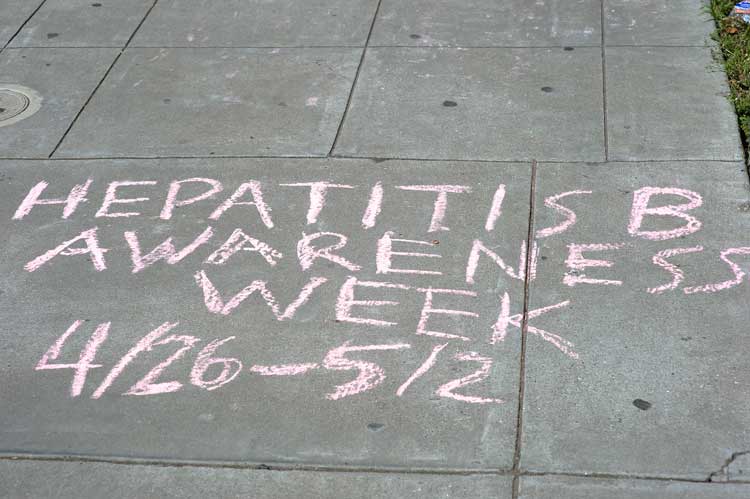 HEPATITIS B
AWARENESS
WEEK
4/26-5/2